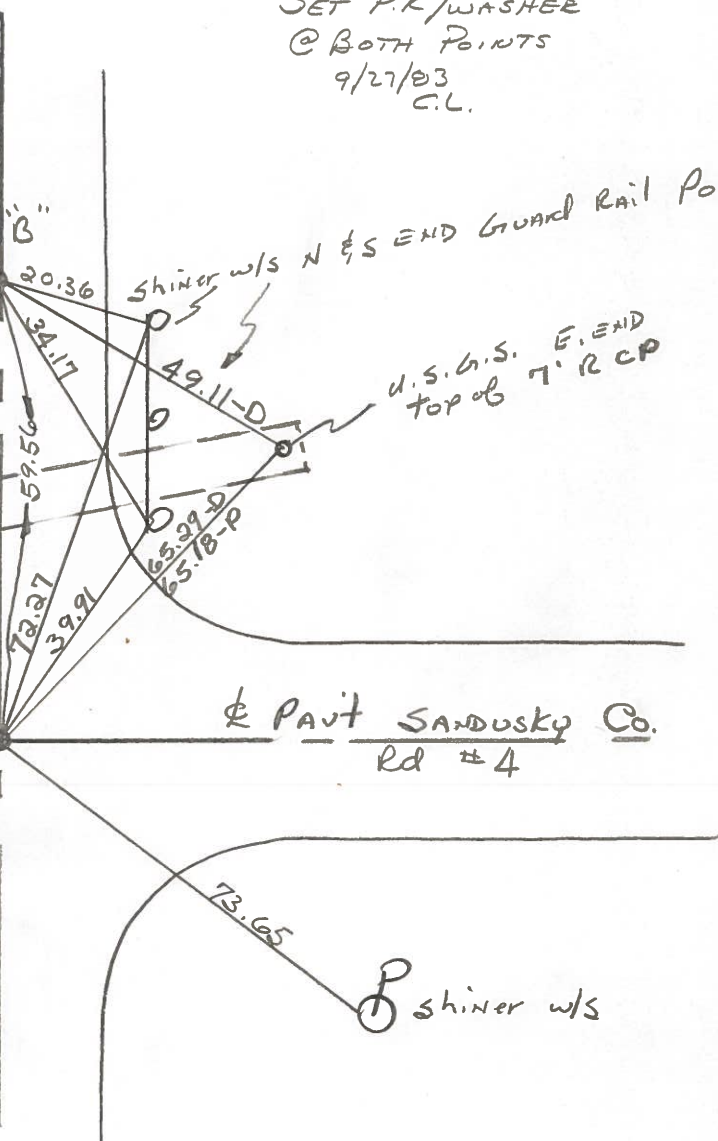 SET P.K/WASHER
@ BOTH POINTS
9/27/83
C.L.
"B"
20.36
Shiner w/s N & S END GUARd RAil Po
34.17
49.11-D
U.S.G.S. E. END
top of 7' R CP
59.56
65.29-D
65.18-P
72.27
39.91
℄ PAV't SANDUSKY Co.
Rd #4
73.65
P
shiner w/s